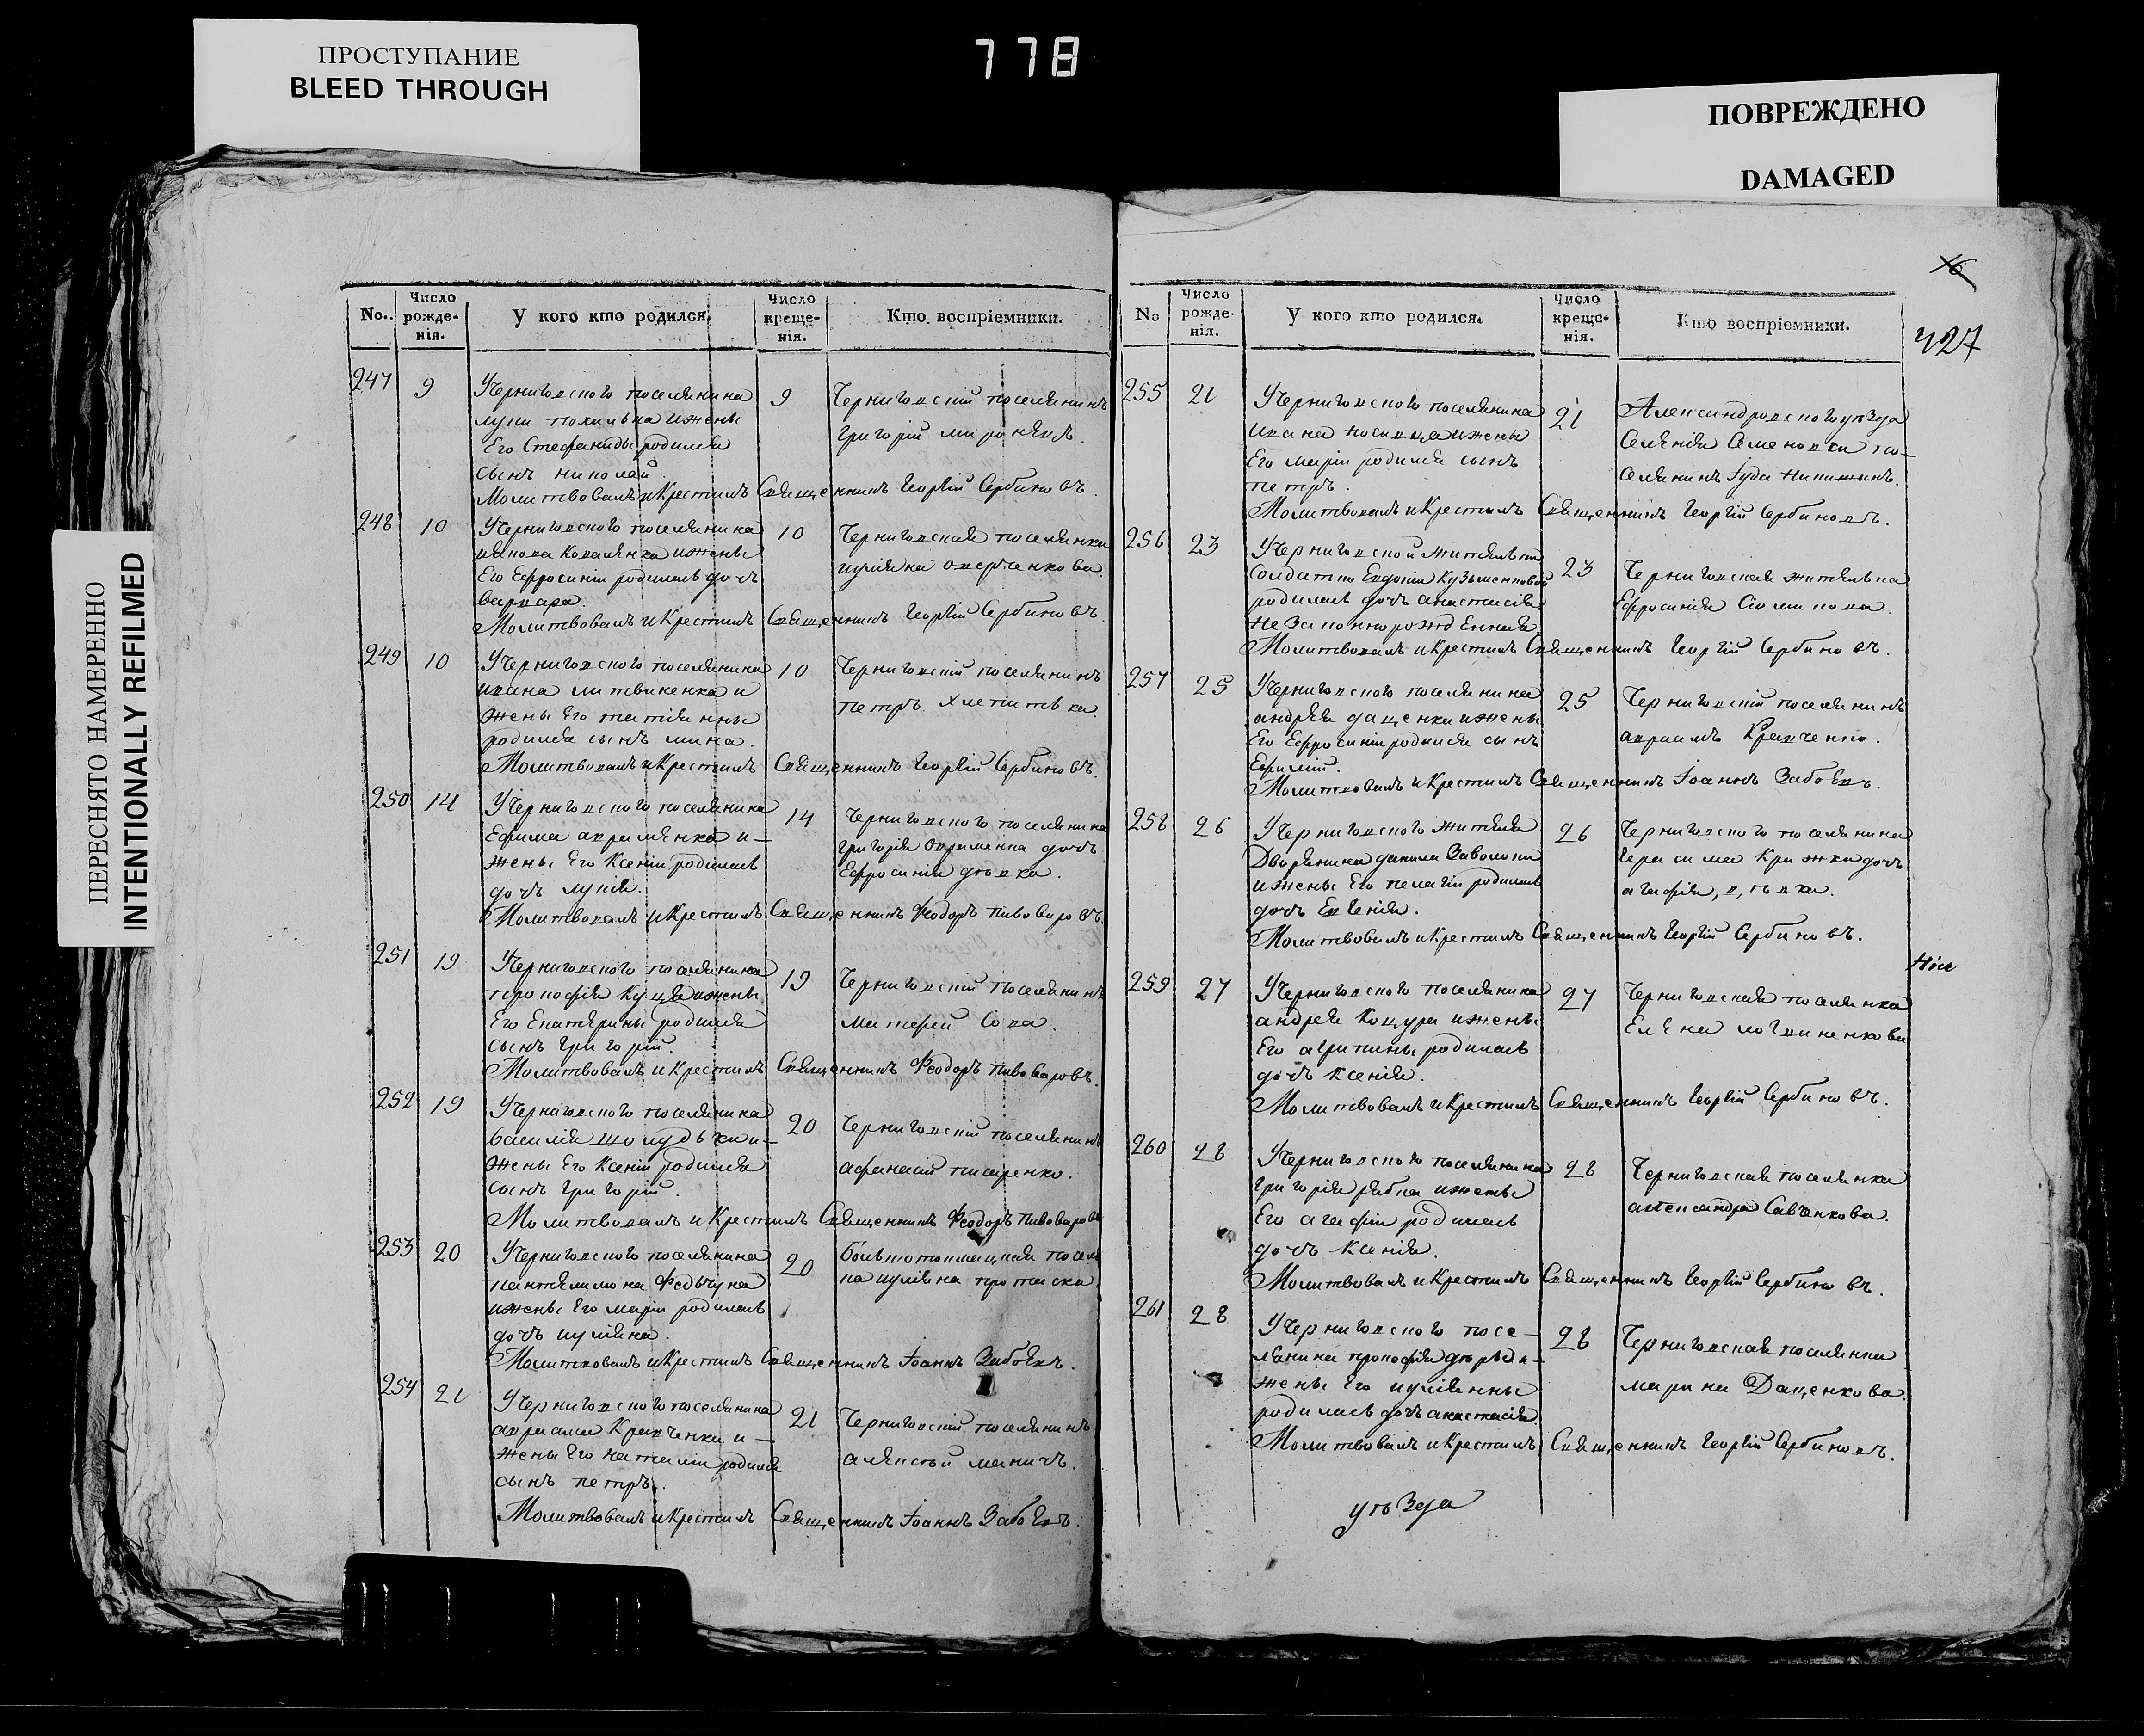 ПРОСТУПАНИЕ
BLEED THROUGH
778
ПОВРЕЖДЕНО
DAMAGED
ПЕРЕСНЯТО НАМЕРЕННО
INTENTIONALLY REFILMED
No. Число рожденія. У кого кто родился. Число крещенія. Кто воспріемники.
247 9 У Черниговского поселянина 9 Черниговскій поселянинъ
и жены Григорій
Его Стефаниды родился
сынъ николай
Молитвовалъ и Крестилъ Священникъ Георгій Сербиновъ.
248 10 У Черниговского поселянина 10 Черниговская поселянка
Коваленка и жены иулияна
Его Ефросиніи родилась дочь
варвара.
Молитвовалъ и Крестилъ Священникъ Георгій Сербиновъ.
249 10 У Черниговского поселянина 10 Черниговскій поселянинъ
ивана литвиненка и петръ
жены Его татіянны
родился сынъ мина.
Молитвовалъ и Крестилъ Священникъ Георгій Сербиновъ.
250 14 У Черниговского поселянина 14 Черниговского поселянина
Ефима авраменка и Григорія дочь
жены Его Ксеніи родилась Ефросинія дѣвка.
дочь
Молитвовалъ и Крестилъ Священникъ Феодоръ пивоваровъ.
251 19 У Черниговского поселянина 19 Черниговскій поселянинъ
прокофія и жены матфей Сова.
Его Екатерины родился
сынъ Григорій.
Молитвовалъ и Крестилъ Священникъ Феодоръ пивоваровъ.
252 19 У Черниговского поселянина 20 Черниговскій поселянинъ
василія и афанасій писаренко.
жены Его Ксеніи родился
сынъ Григорій.
Молитвовалъ и Крестилъ Священникъ Феодоръ пивоваровъ
253 20 У Черниговского поселянина 20
пантелимона иулияна
и жены Его маріи родилась
дочь иулияна.
Молитвовалъ и Крестилъ Священникъ Іоаннъ
254 21 У Черниговского поселянина 21 Черниговскій поселянинъ
авраама Кравченки и алексѣй
жены Его наталіи родился
сынъ петръ.
Молитвовалъ и Крестилъ Священникъ Іоаннъ
427
No Число рожденія. У кого кто родился. Число крещенія. Кто воспріемники.
255 21 У Черниговского поселянина 21 Александровского уѣзда
ивана и жены Селенія Семеновки по-
Его маріи родился сынъ селянинъ
петръ.
Молитвовалъ и Крестилъ Священникъ Георгій Сербиновъ.
256 23 У Черниговской 23 Черниговская
Солдатки Евдокіи Кузьменковой Ефросинія
родилась дочь анастасія
незаконнорожденная.
Молитвовалъ и Крестилъ Священникъ Георгій Сербиновъ.
257 25 У Черниговского поселянина 25 Черниговскій поселянинъ
андрея даценки и жены авраамъ Кравченко.
Его Ефросиніи родился сынъ
Ефимій.
Молитвовалъ и Крестилъ Священникъ Іоаннъ
258 26 У Черниговского жителя 26 Черниговского поселянина
Дворянина данила Герасима дочь
и жены Его пелагіи родилась агафія,
дочь Евгенія.
Молитвовалъ и Крестилъ Священникъ Георгій Сербиновъ.
259 27 У Черниговского поселянина 27 Черниговская поселянка
андрея и жены Елена
Его агрипины родилась
дочь Ксенія.
Молитвовалъ и Крестилъ Священникъ Георгій Сербиновъ.
260 28 У Черниговского поселянина 28 Черниговская поселянка
Григорія и жены александра Савченкова.
Его агафіи родилась
дочь Ксенія.
Молитвовалъ и Крестилъ Священникъ Георгій Сербиновъ.
261 28 У Черниговского посе- 28 Черниговская поселянка
лянина прокофія марина Даценкова.
жены Его иулиянны
родилась дочь анастасія.
Молитвовалъ и Крестилъ Священникъ Георгій Сербиновъ.
уѣзда